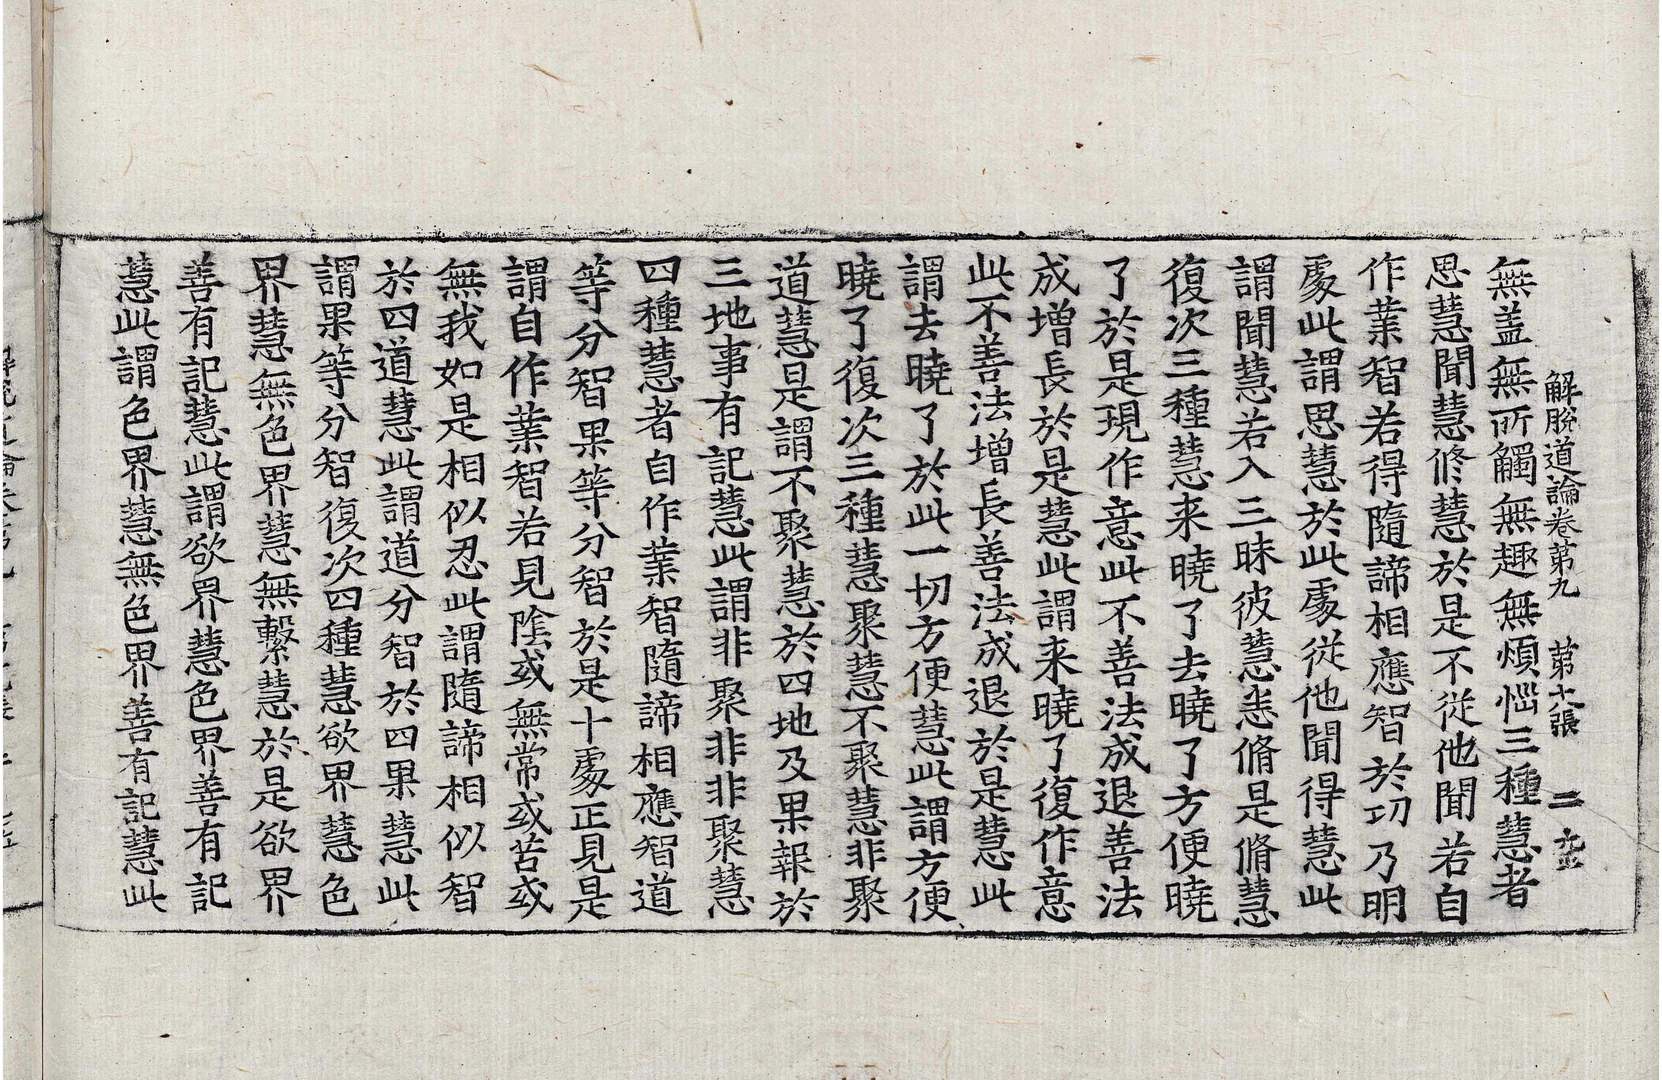 解脫道論卷第九 第七張 二
無蓋無所觸無趣無煩惱三種慧者
思慧聞慧修慧於是不從他聞若自
作業智若得隨諦相應智於功乃明
處此謂思慧於此處從他聞得慧此
謂聞慧若入三昧彼慧悉脩是脩慧
復次三種慧来曉了去曉了方便曉
了於是現作意此不善法成退善法
成增長於是慧此謂来曉了復作意
此不善法增長善法成退於是慧此
謂去曉了於此一切方便慧此謂方便
曉了復次三種慧聚慧不聚慧非聚
道慧是謂不聚慧於四地及果報於
三地事有記慧此謂非聚非非聚慧
四種慧者自作業智隨諦相應智道
等分智果等分智於是十處正見是
謂自作業智若見陰或無常或苦或
無我如是相似忍此謂隨諦相似智
於四道慧此謂道分智於四果慧此
謂果等分智復次四種慧欲界慧色
界慧無色界慧無繫慧於是欲界
善有記慧此謂欲界慧色界善有記
慧此謂色界慧無色界善有記慧此